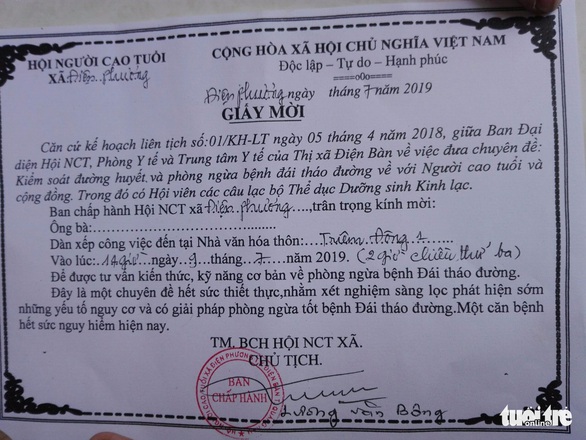 HỘI NGƯỜI CAO TUỔI
XÃ: Điện Phương
CỘNG HÒA XÃ HỘI CHỦ NGHĨA VIỆT NAM
Độc lập – Tự do – Hạnh phúc
====o0o====
Điện Phương ngày tháng 7 năm 2019
GIẤY MỜI
Căn cứ kế hoạch liên tịch số:01/KH-LT ngày 05 tháng 4 năm 2018, giữa Ban Đại
diện Hội NCT, Phòng Y tế và Trung tâm Y tế của Thị xã Điện Bàn về việc đưa chuyên đề:
Kiểm soát đường huyết và phòng ngừa bệnh đái tháo đường về với Người cao tuổi và
cộng đồng. Trong đó có Hội viên các câu lạc bộ Thể dục Dưỡng sinh Kinh lạc.
Ban chấp hành Hội NCT xã Điện Phương....,trân trọng kính mời:
Ông bà:..............................................
Dàn xếp công việc đến tại Nhà văn hóa thôn:... Triêm Đông 1
Vào lúc: 14 giờ ngày 9 tháng 7 năm 2019. (2 giờ chiều thứ ba)
Để được tư vấn kiến thức, kỹ năng cơ bản về phòng ngừa bệnh Đái tháo đường.
Đây là một chuyên đề hết sức thiết thực,nhằm xét nghiệm sàng lọc phát hiện sớm
những yếu tố nguy cơ và có giải pháp phòng ngừa tốt bệnh Đái tháo đường.Một căn bệnh
hết sức nguy hiểm hiện nay.
TM. BCH HỘI NCT XÃ.
CHỦ TỊCH.
BAN
CHẤP HÀNH
Dương Văn Bông
tuổi trẻ
online